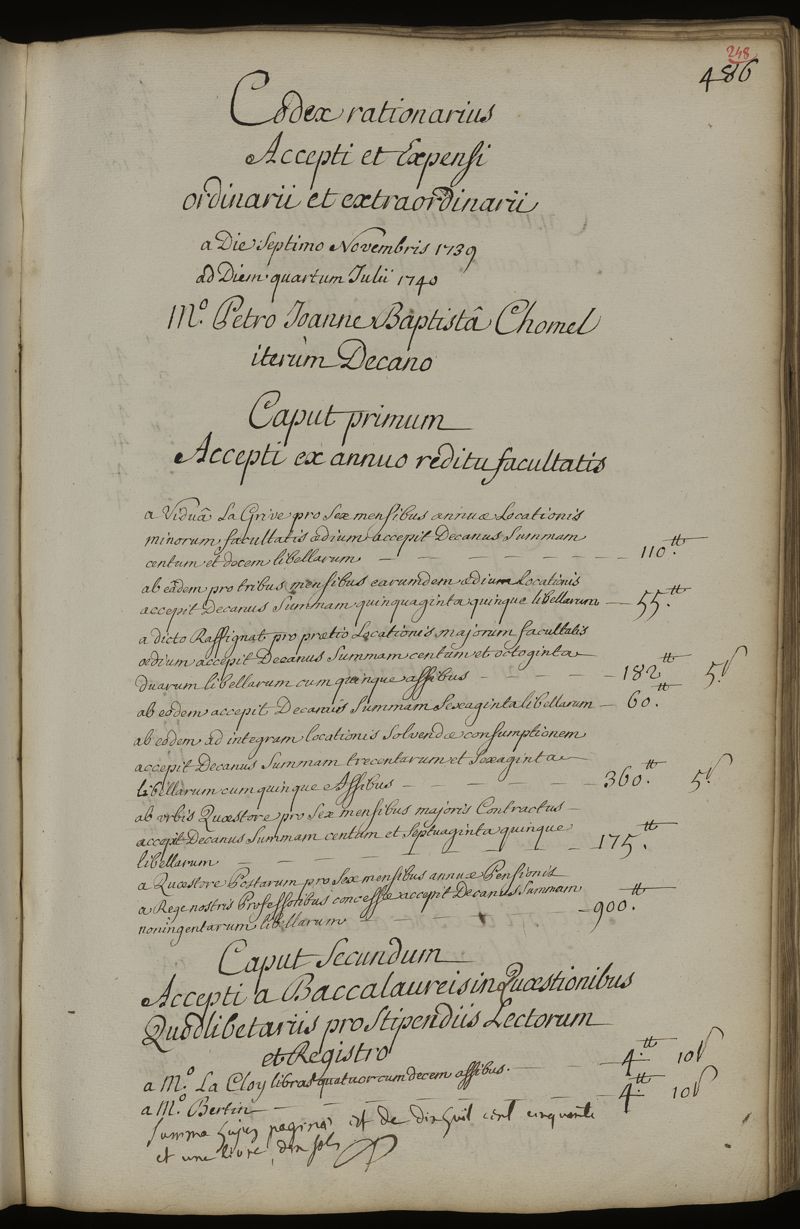 248
486
Codex rationarius
Accepti et Expensi
ordinarii et extraordinarii
a Die Septimo Novembris 1739
ad Diem quartum Julii 1740
M.o Petro Joanne Baptistâ Chomel
iterùm Decano
Caput primum
Accepti ex annuo reditu facultatis
a Viduâ La Grive pro Sex mensibus annuæ Locationis
minorum facultatis ædium accepit Decanus Summam
centum et decem libellarum — 110.tt
ab eâdem pro tribus mensibus earumdem ædium Locationis
accepit Decanus Summam quinquaginta quinque libellarum — 55.tt
a dicto Raffignat pro prætio Locationis majorum facultatis
ædium accepit Decanus Summam centum et octoginta
duarum libellarum cum quinque assibus — 182tt 5s
ab eodem accepit Decanus Summam Sexaginta libellarum — 60.tt
ab eodem ad integram locationis Solvendæ consumptionem
accepit Decanus Summam trecentarum et Sexaginta
libellarum cum quinque Assibus — 360.tt 5s
ab urbis Quæstore pro Sex mensibus majoris Contractus
accepit Decanus Summam centum et Septuaginta quinque
libellarum — 175.tt
a Quæstore Postarum pro Sex mensibus annuæ Pensionis
a Rege nostris Professoribus concessæ accepit Decanus Summam
noningentarum libellarum — 900.tt
Caput Secundum
Accepti a Baccalaureis in Quæstionibus
Quodlibetariis pro Stipendiis Lectorum
et Registro
a M.o La Cloy libras quatuor cum decem assibus. — 4.tt 10s
a M.o Bertin — 4.tt 10s
Summa hujus paginæ est de dixhuit cent cinquante
et une livre, dix sols